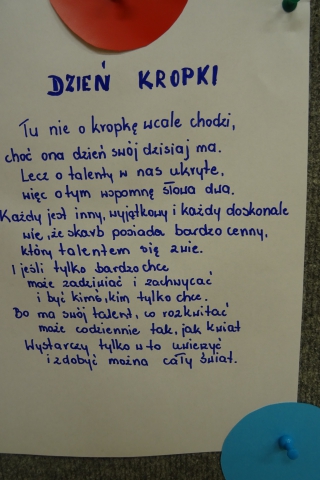 DZIEŃ KROPKI
Tu nie o kropkę wcale chodzi,
choć ona dzień swój dzisiaj ma.
Lecz o talenty w nas ukryte,
więc o tym wspomnę słowa dwa.
Każdy jest inny, wyjątkowy i każdy doskonale
wie, że skarb posiada bardzo cenny,
który talentem się zwie.
I jeśli tylko bardzo chce
może zadziwiać i zachwycać
i być kimś, kim tylko chce.
Bo ma swój talent, co rozkwitać
może codziennie tak, jak kwiat
Wystarczy tylko w to uwierzyć
i zdobyć można cały świat.